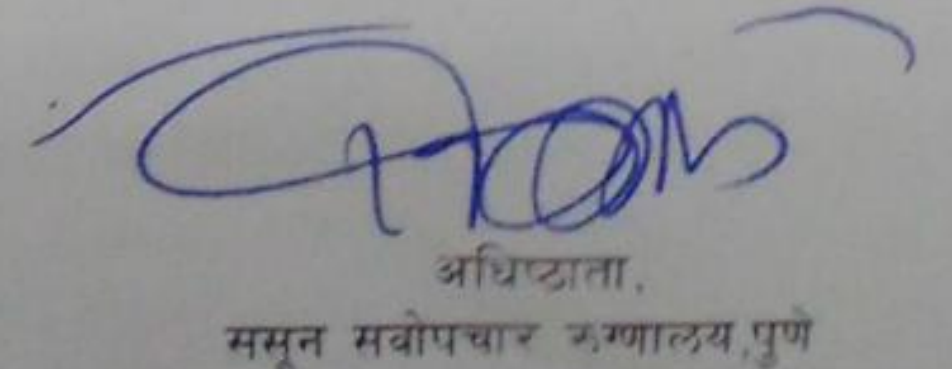 अधिष्ठाता,
ससून सर्वोपचार रुग्णालय,पुणे